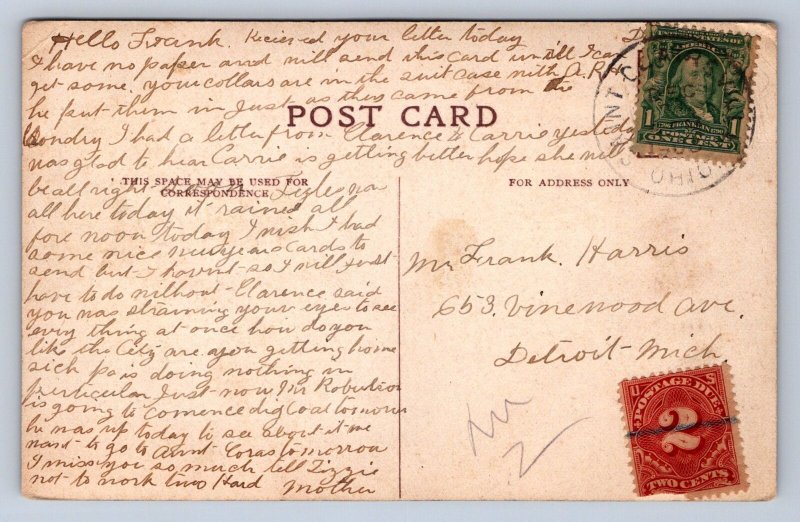 Hello Frank. Recieved your letter today
I have no paper and will send this card untill I can
get some. your collars are in the suit case with
he put them in Just as they came from the
londry I had a letter from Clarence & Carrie yestoday
was glad to hear Carrie is getting better hope she will
be all right
all here today it rained all
fore noon today I wish I had
some nice newyears cards to
send but I havnt so I will Just
have to do without Clarence said
you was straining your eyes to see
evry thing at once how do you
like the City are you getting home
sick pa is doing nothing in
perticular Just now Mr Robertson
is going to comence dig Coal tomorow
he was up today to see about it we
want to go to Aunt Coras tomorrow
I miss you so much tell Lizzie
not to work two Hard Mother
POST CARD
THIS SPACE MAY BE USED FOR
CORRESPONDENCE
FOR ADDRESS ONLY
Mr Frank. Harris
653. Vinewood ave.
Detroit Mich.
OHIO
UNITED STATES OF
AMERICA
1 1
FRANKLIN
POSTAGE
ONE CENT
U S
POSTAGE DUE
2
TWO CENTS